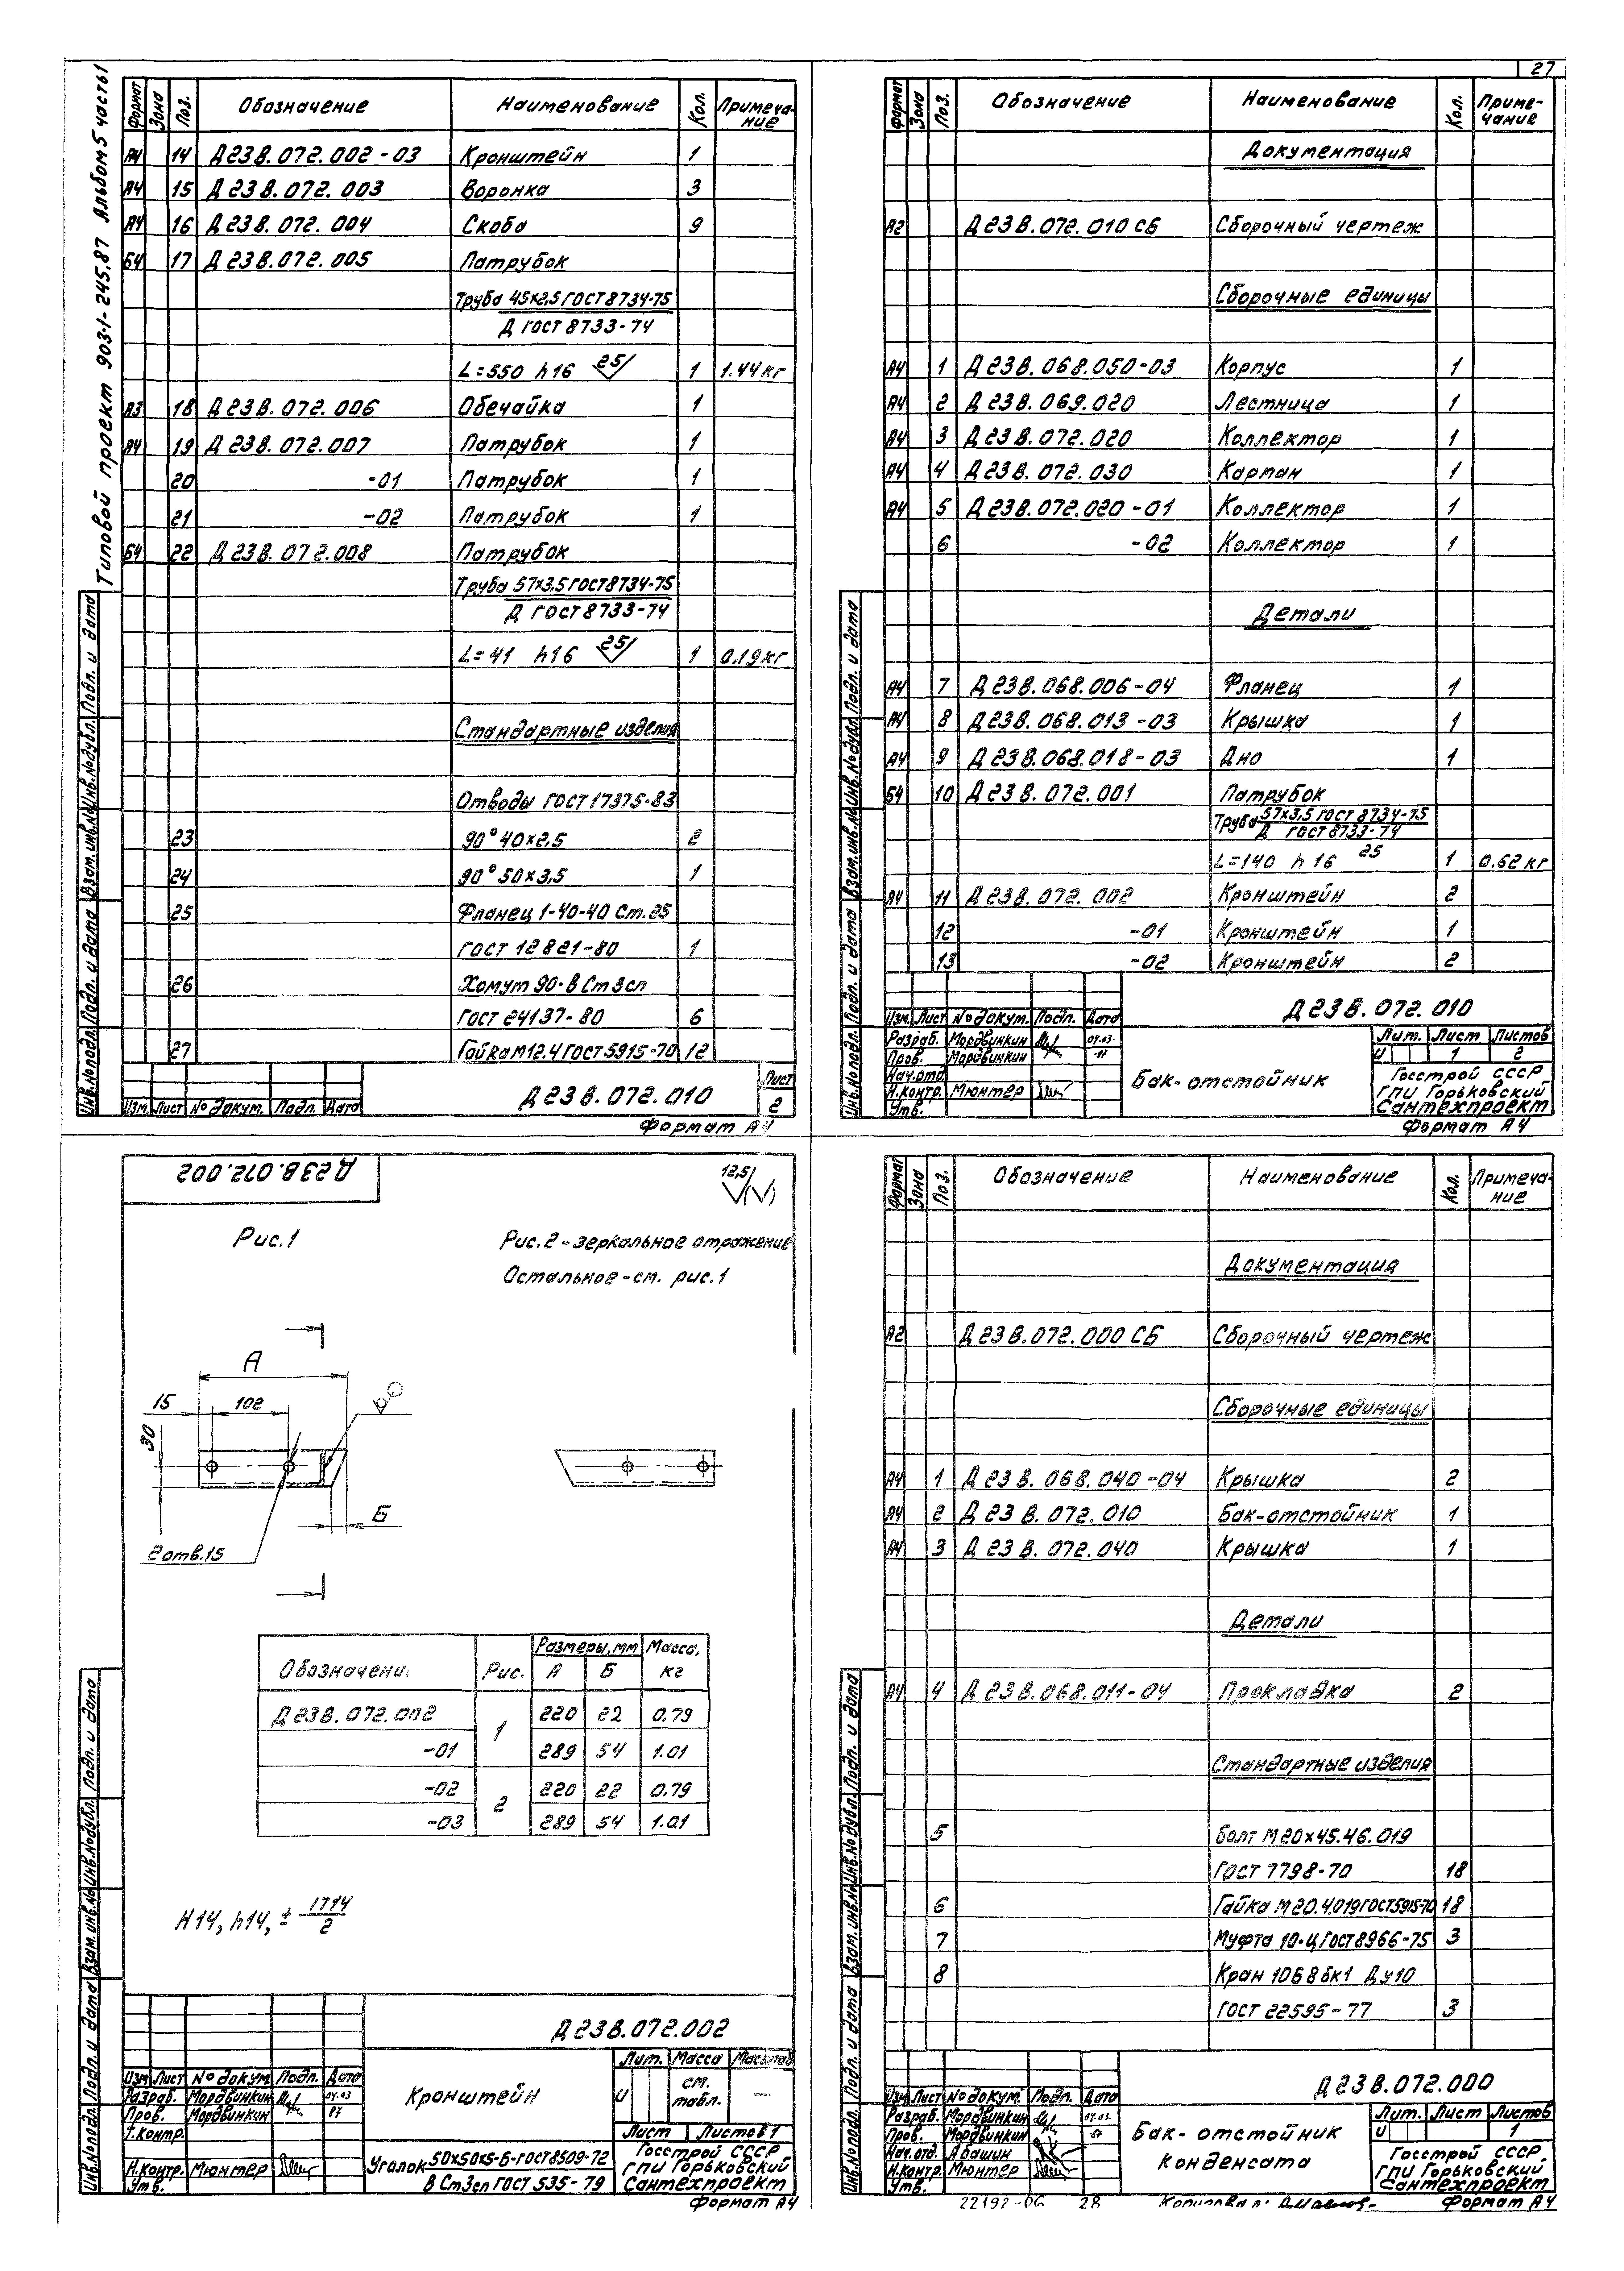 27
Типовой проект 903-1-245.87 Альбом 5 часть 1
Формат Зона Поз. Обозначение Наименование Кол. Примечание
А4 14 Д23В.072.002-03 Кронштейн 1
А4 15 Д23В.072.003 Воронка 3
А4 16 Д23В.072.004 Скоба 9
БЧ 17 Д23В.072.005 Патрубок
Труба 45х2,5 ГОСТ 8734-75
Д ГОСТ 8733-74
L=550 h16 25 1 1.44кг
А3 18 Д23В.072.006 Обечайка 1
А4 19 Д23В.072.007 Патрубок 1
20 -01 Патрубок 1
21 -02 Патрубок 1
БЧ 22 Д23В.072.008 Патрубок
Труба 57х3,5 ГОСТ 8734-75
Д ГОСТ 8733-74
L=41 h16 25 1 0,19кг
Стандартные изделия
Отводы ГОСТ 17375-83
23 90° 40х2,5 2
24 90° 50х3,5 1
25 Фланец 1-40-40 Ст.25
ГОСТ 12821-80 1
26 Хомут 90-В Ст3сп
ГОСТ 24137-80 6
27 Гайка М12.4 ГОСТ 5915-70 12
Изм. Лист № докум. Подп. Дата
Д23В.072.010
Лист
2
Формат А4
Инв.№подл. Подп. и дата Взам.инв.№ Инв.№дубл. Подп. и дата
Формат Зона Поз. Обозначение Наименование Кол. Примечание
Документация
А2 Д23В.072.010 СБ Сборочный чертеж
Сборочные единицы
А4 1 Д23В.068.050-03 Корпус 1
А4 2 Д23В.069.020 Лестница 1
А4 3 Д23В.072.020 Коллектор 1
А4 4 Д23В.072.030 Карман 1
А4 5 Д23В.072.020-01 Коллектор 1
6 -02 Коллектор 1
Детали
А4 7 Д23В.068.006-04 Фланец 1
А4 8 Д23В.068.013-03 Крышка 1
А4 9 Д23В.068.018-03 Дно 1
БЧ 10 Д23В.072.001 Патрубок
Труба 57х3,5 ГОСТ 8734-75
Д ГОСТ 8733-74
L=140 h16 25 1 0.62кг
А4 11 Д23В.072.002 Кронштейн 2
12 -01 Кронштейн 1
13 -02 Кронштейн 2
Д23В.072.010
Изм. Лист № докум. Подп. Дата
Разраб. Мордвинкин 04.03.
Пров. Мордвинкин -87
Нач.отд.
Н.контр. Мюнтер
Утв.
Бак-отстойник
Лит. Лист Листов
И 1 2
Госстрой СССР
ГПИ Горьковский
Сантехпроект
Формат А4
Инв.№подл. Подп. и дата Взам.инв.№ Инв.№дубл. Подп. и дата
Д23В.072.002
12,5 (√)
Рис.1
Рис.2-зеркальное отражение
Остальное-см. рис.1
А
15 102
30
Б
2отв.15
Обозначени. Рис. Размеры,мм Масса, кг
А Б
Д23В.072.002 1 220 22 0.79
-01 289 54 1.01
-02 2 220 22 0,79
-03 289 54 1.01
Н14, h14, ± IT14/2
Д23В.072.002
Изм Лист № докум. Подп. Дата
Разраб. Мордвинкин 04.03
Пров. Мордвинкин 87
Т.контр.
Н.контр. Мюнтер
Утв.
Кронштейн
Лит. Масса Масштаб
И см. табл. —
Лист Листов 1
Уголок 50х50х5-Б-ГОСТ 8509-72
В Ст3сп ГОСТ 535-79
Госстрой СССР
ГПИ Горьковский
Сантехпроект
Формат А4
Инв.№подл. Подп. и дата Взам.инв.№ Инв.№дубл. Подп. и дата
Формат Зона Поз. Обозначение Наименование Кол. Примечание
Документация
А2 Д23В.072.000 СБ Сборочный чертеж
Сборочные единицы
А4 1 Д23В.068.040-04 Крышка 2
А4 2 Д23В.072.010 Бак-отстойник 1
А4 3 Д23В.072.040 Крышка 1
Детали
А4 4 Д23В.068.011-04 Прокладка 2
Стандартные изделия
5 Болт М20х45.46.019
ГОСТ 7798-70 18
6 Гайка М20.4.019 ГОСТ 5915-70 18
7 Муфта 10-Ц ГОСТ 8966-75 3
8 Кран 10Б8бк1 Ду10
ГОСТ 22595-77 3
Д23В.072.000
Изм. Лист № докум. Подп. Дата
Разраб. Мордвинкин 04.03.
Пров. Мордвинкин -87
Нач.отд. Абашин
Н.контр. Мюнтер
Утв.
Бак-отстойник
конденсата
Лит. Лист Листов
И 1
Госстрой СССР
ГПИ Горьковский
Сантехпроект
Инв.№подл. Подп. и дата Взам.инв.№ Инв.№дубл. Подп. и дата
22192-06 28 Копировал: Формат А4